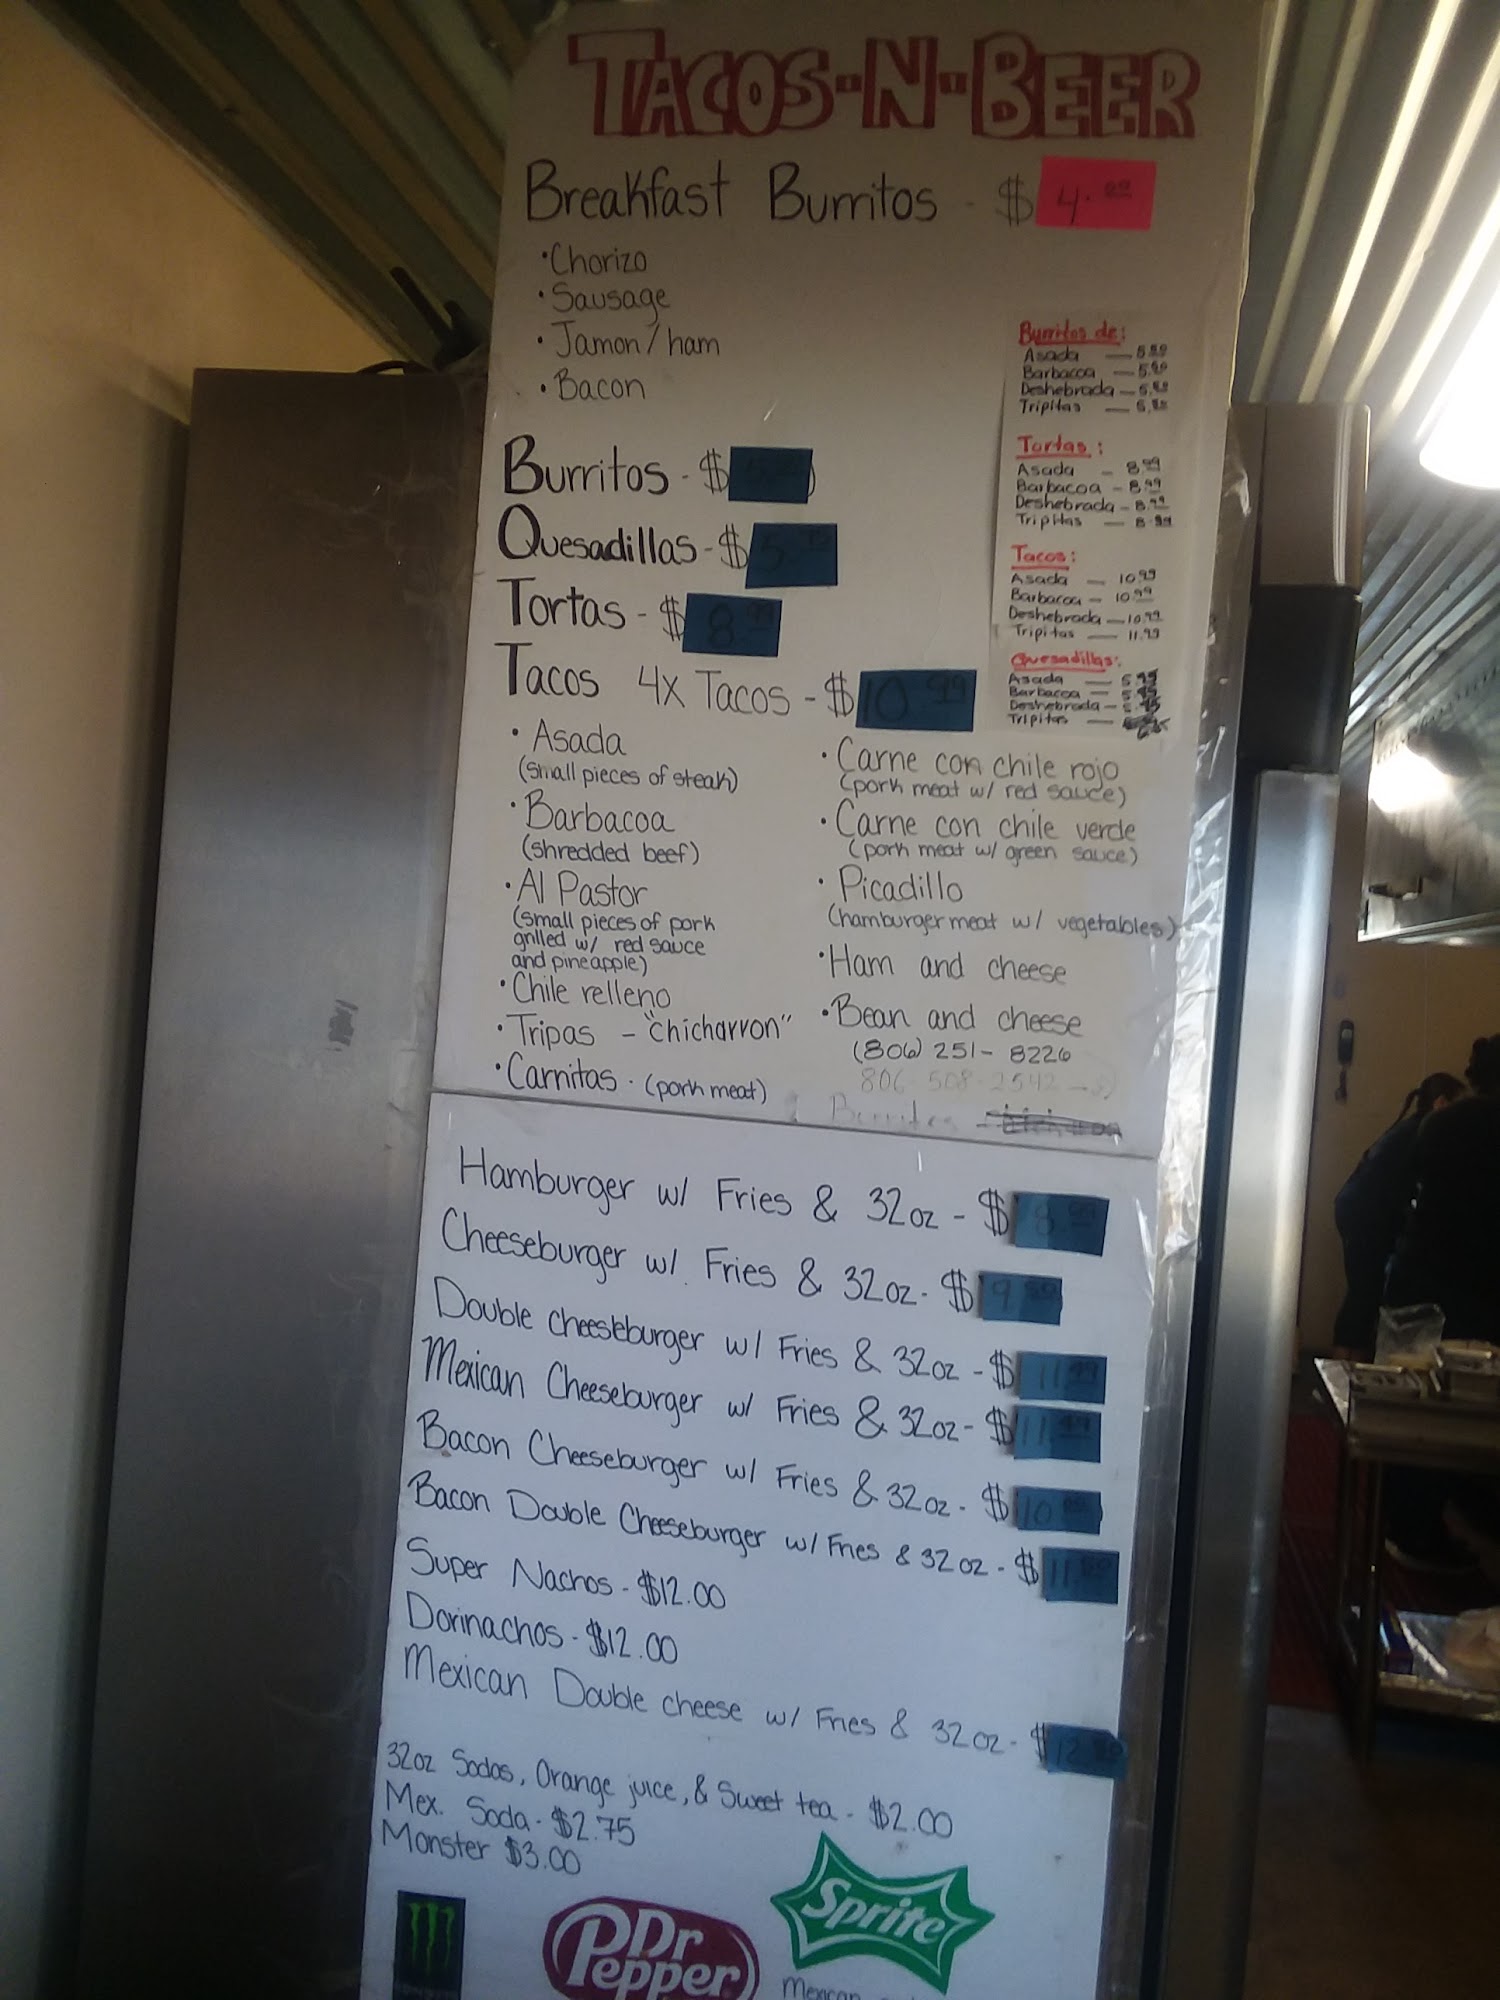 TACOS-N-BEER
Breakfast Burritos - $ 4.99
·Chorizo
·Sausage
·Jamon/ham
·Bacon
Burritos - $
Quesadillas - $5.
Tortas - $8.99
Tacos 4x Tacos - $10.99
·Asada
(small pieces of steak)
·Barbacoa
(shredded beef)
·Al Pastor
(small pieces of pork
grilled w/ red sauce
and pineapple)
·Chile relleno
·Tripas - "chicharron"
·Carnitas - (pork meat)
·Carne con chile rojo
(pork meat w/ red sauce)
·Carne con chile verde
(pork meat w/ green sauce)
·Picadillo
(hamburger meat w/ vegetables)
·Ham and cheese
·Bean and cheese
(806) 251-8226
806-508-2542
Burritos -
Burritos de:
Asada — 5.99
Barbacoa — 5.99
Deshebrada — 5.99
Tripitas —
Tortas:
Asada - 8.99
Barbacoa - 8.99
Deshebrada - 8.99
Tripitas — 8.99
Tacos:
Asada — 10.99
Barbacoa — 10.99
Deshebrada — 10.99
Tripitas — 11.99
Quesadillas:
Asada —
Barbacoa —
Deshebrada —
Tripitas —
Hamburger w/ Fries & 32oz - $8.99
Cheeseburger w/. Fries & 32oz - $9.99
Double cheeseburger w/ Fries & 32oz - $11.99
Mexican Cheeseburger w/ Fries & 32oz - $11.99
Bacon Cheeseburger w/ Fries & 32oz - $10.99
Bacon Double Cheeseburger w/ Fries & 32oz - $11.99
Super Nachos - $12.00
Dorinachos - $12.00
Mexican Double cheese w/ Fries & 32oz - $12.
32oz Sodas, Orange juice, & Sweet tea - $2.00
Mex. Soda - $2.75
Monster $3.00
Dr Pepper
Sprite
Mexican